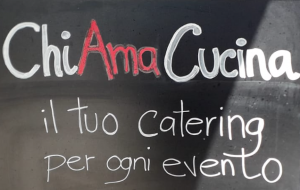 ChiAmaCucina
il tuo catering
per ogni evento